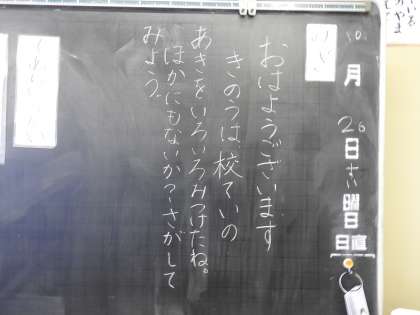 10月26日 曜日
日直
おはようございます
きのうは、校ていの
あきをいろいろみつけたね。
ほかにもないか？さがして
みよう。